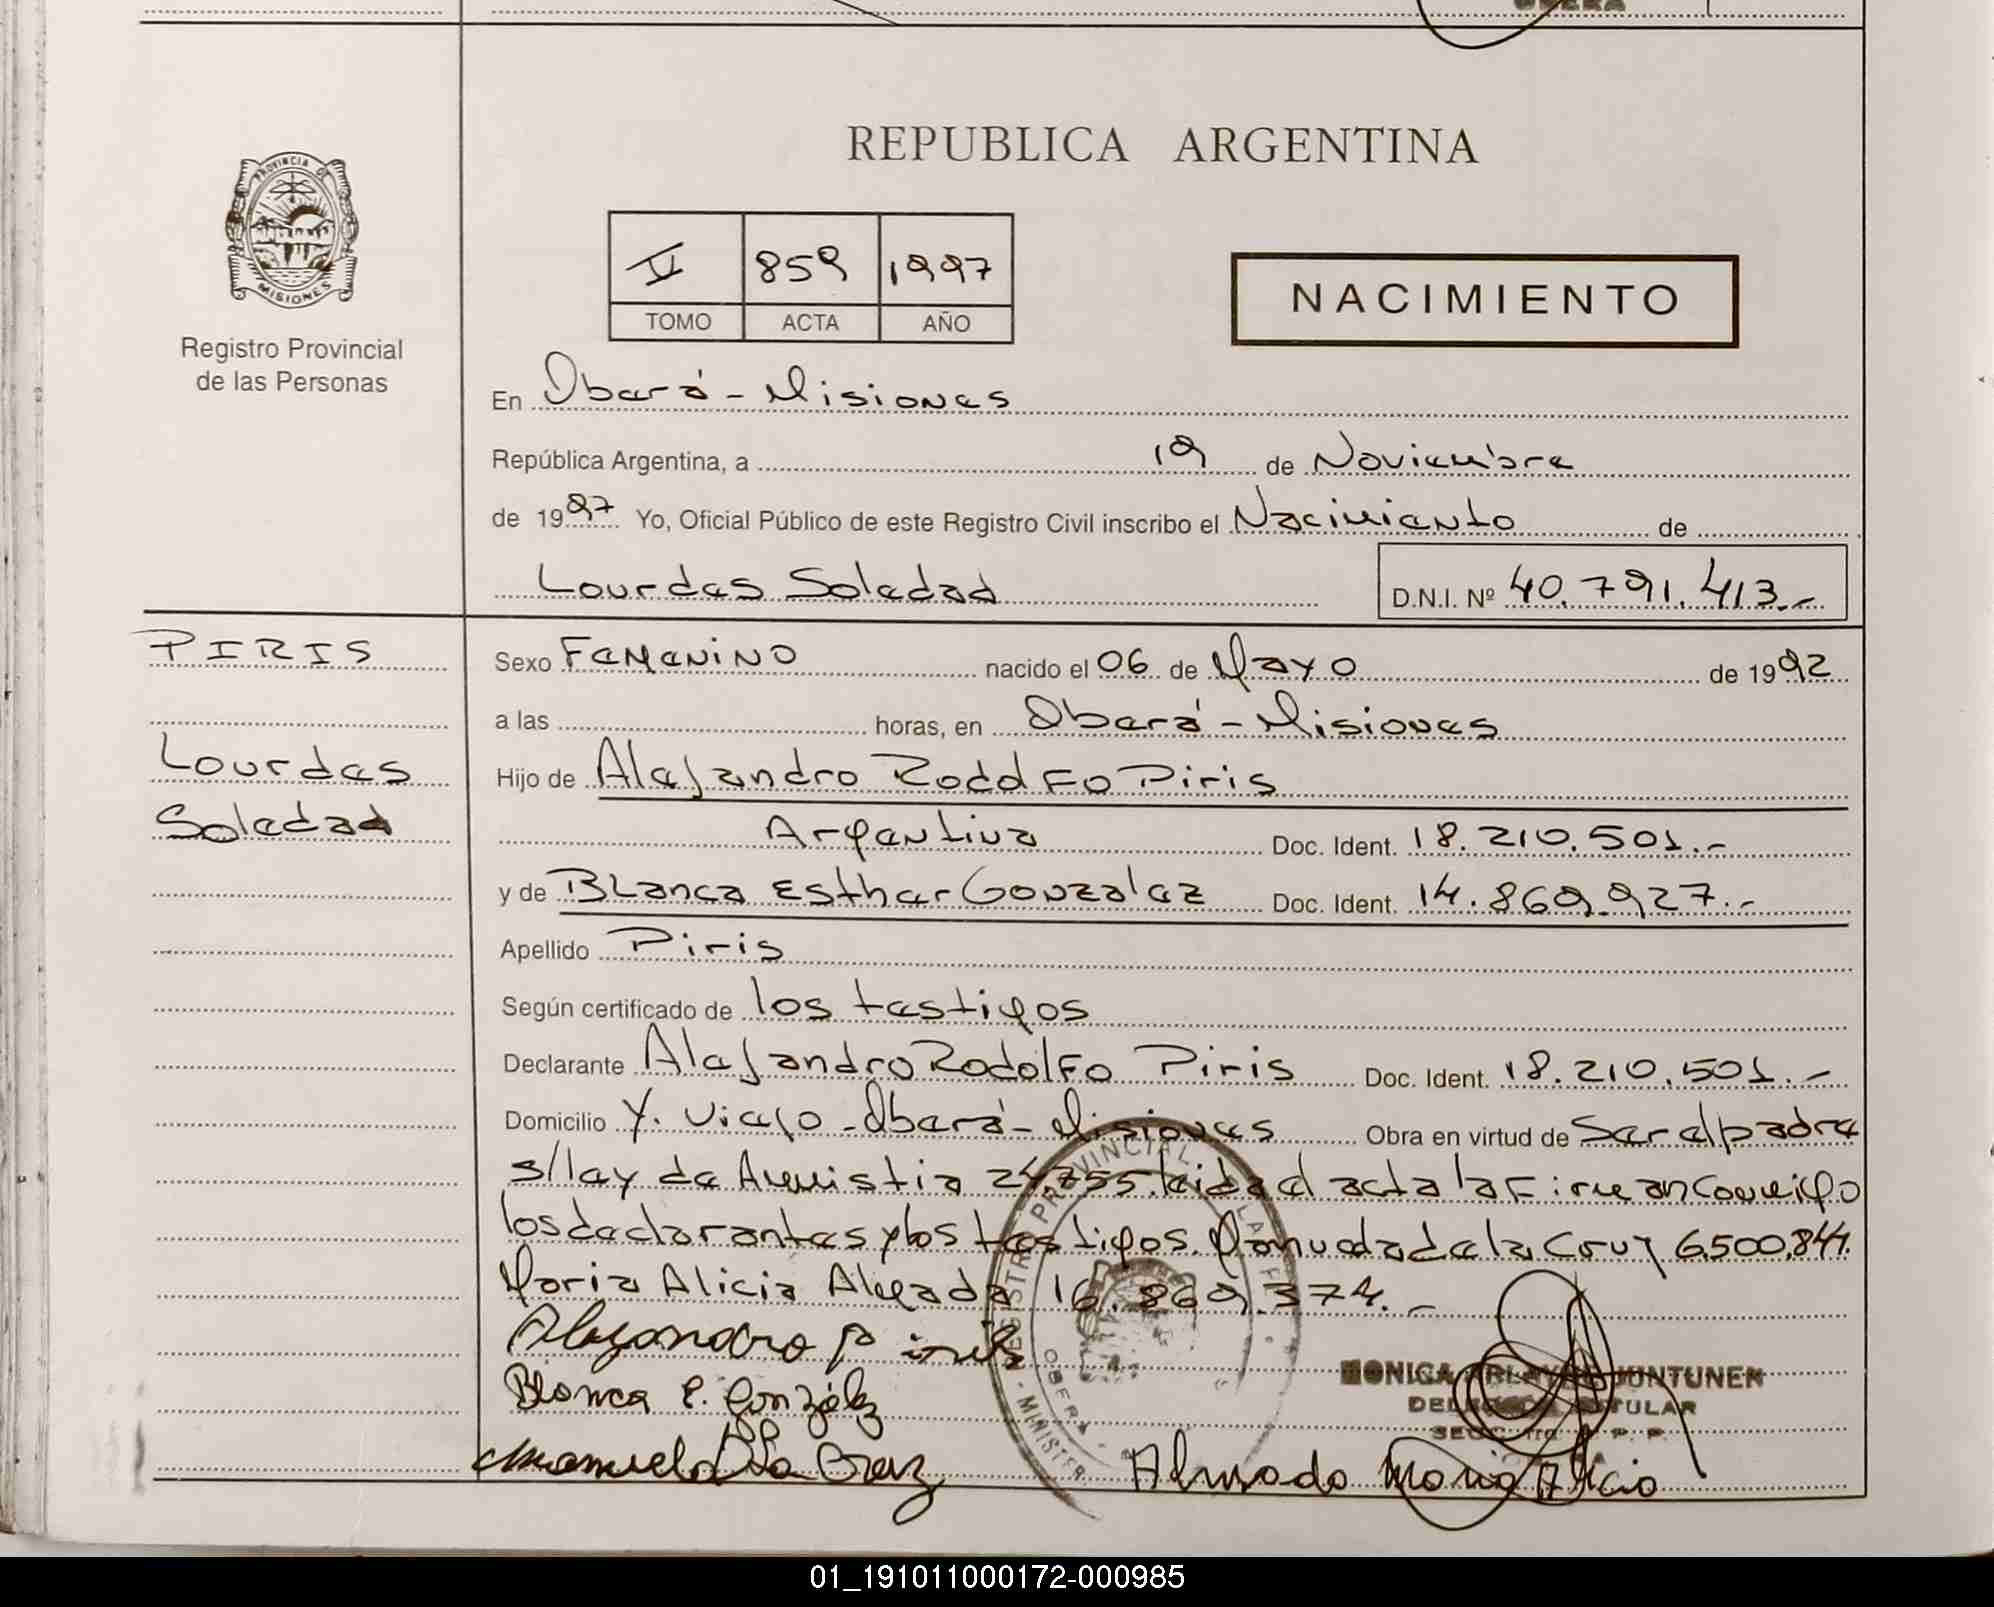 OBERA
REPUBLICA ARGENTINA
PROVINCIA DE
MISIONES
Registro Provincial
de las Personas
V 859 1997
TOMO ACTA AÑO
NACIMIENTO
En Oberá - Misiones
República Argentina, a 19 de Noviembre
de 1997 Yo, Oficial Público de este Registro Civil inscribo el Nacimiento de
Lourdes Soledad D.N.I. Nº 40.791.413.-
PIRIS
Lourdes
Soledad
Sexo Femenino nacido el 06 de Mayo de 1992
a las horas, en Oberá - Misiones
Hijo de Alejandro Rodolfo Piris
Argentina Doc. Ident. 18.210.501.-
y de Blanca Esther Gonzalez Doc. Ident. 14.869.927.-
Apellido Piris
Según certificado de los testigos
Declarante Alejandro Rodolfo Piris Doc. Ident. 18.210.501.-
Domicilio Y. Viejo - Oberá - Misiones Obra en virtud de Ser el padre
s/ley de Amnistia 24.755. Leida el acta la firman conmigo
los declarantes y los testigos. Manuela de la Cruz 6.500.841.
Maria Alicia Almada 16.869.374.-
Alejandro Piris
Blanca E. González
Manuela D La Cruz
Almada Maria Alicia
REGISTRO PROVINCIAL DE LA
OBERA
MINISTER
MONICA JUNTUNEN
TITULAR
01_191011000172-000985